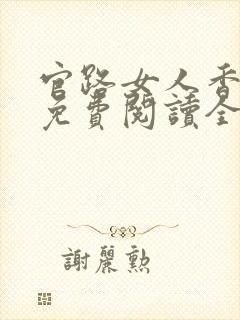 官路女人香
免費閱讀全
謝麗勳